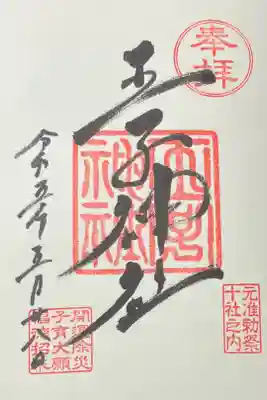 奉拜
王子神社
王子神社
元准勅祭
十社之内
令和五年五月廿八日
開運除災
子育大願
福徳招来